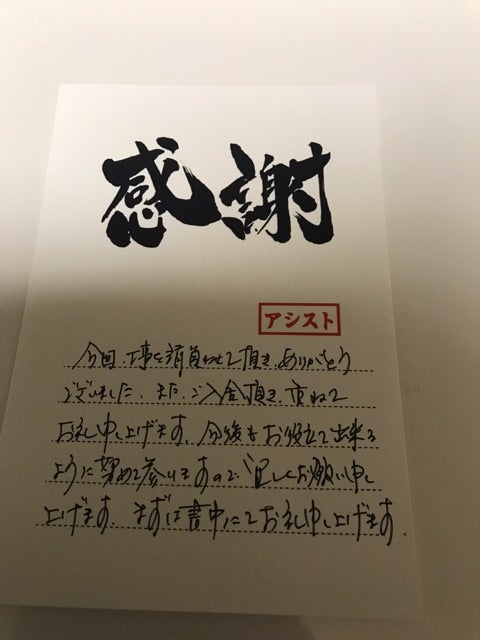 感謝
アシスト
今回、工事を請負わせて頂き、ありがとう
ございました。また、ご入金頂き、重ねて
お礼申し上げます。今後もお役立て出来る
ように努めて参いますので、宜しくお願い申し
上げます。まずは書中にてお礼申し上げます。